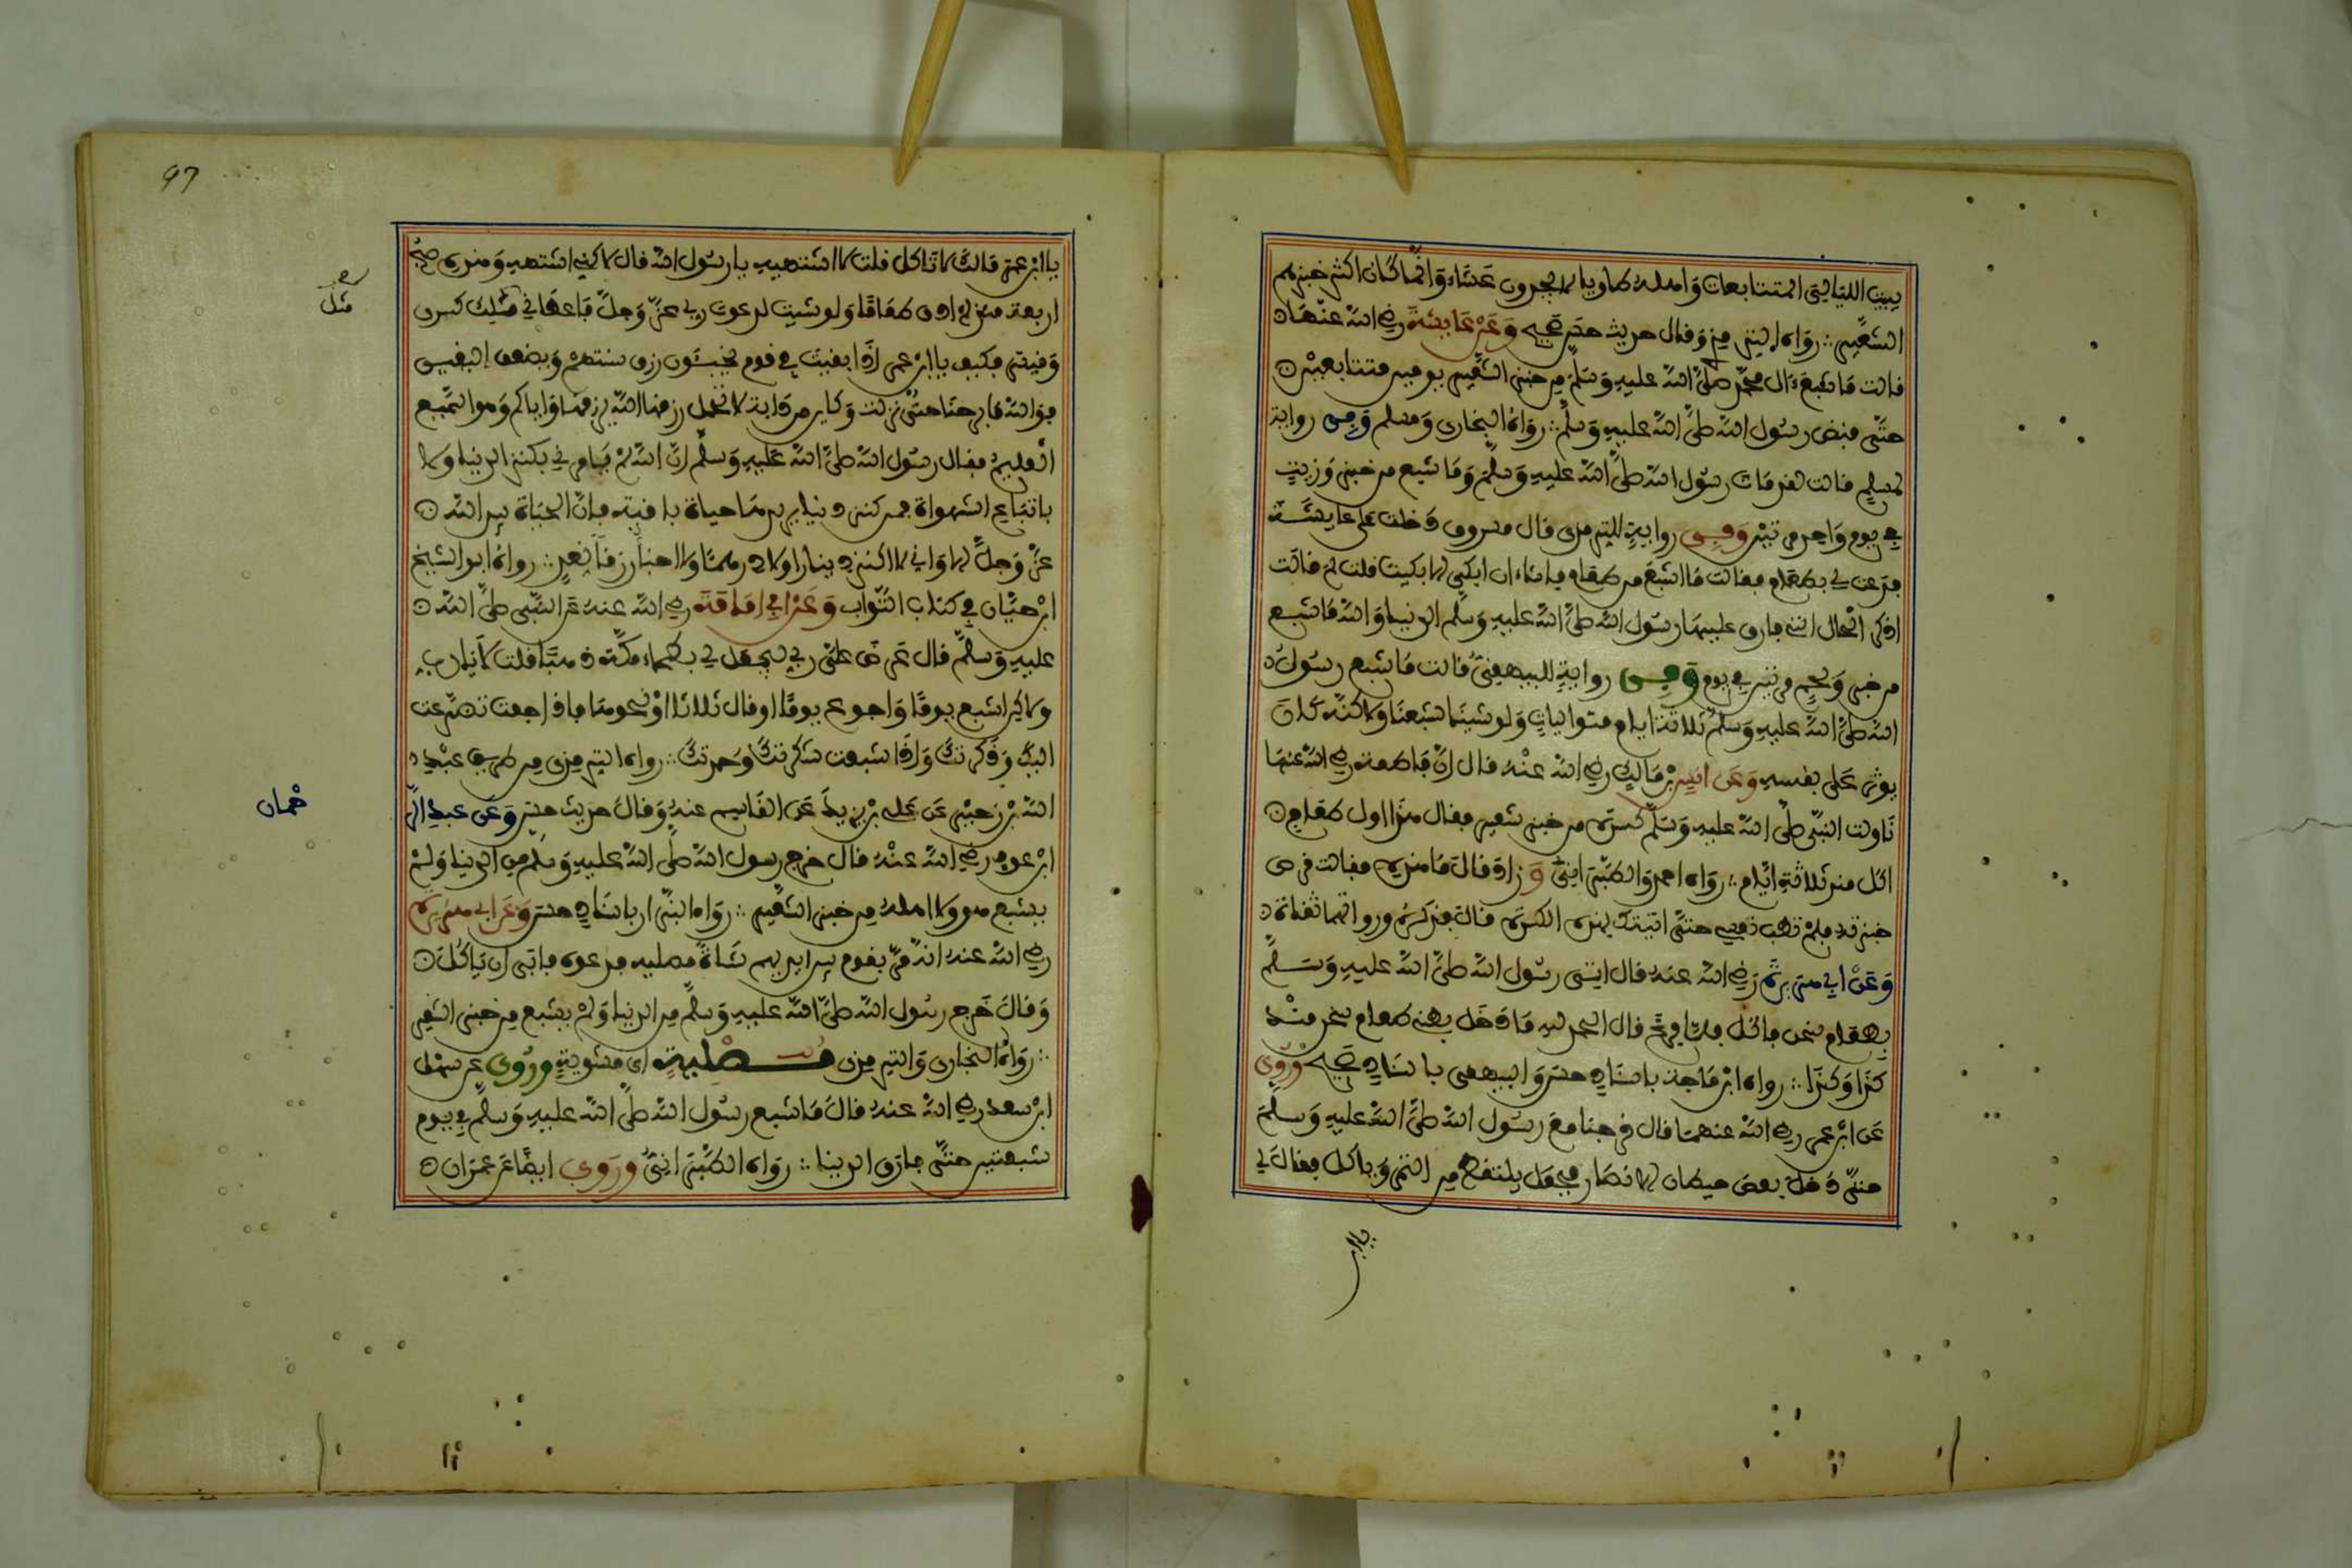 يبيت الليالي المتتابعات وأهله طاويا لا يجدون عشاء وإنما كان أكثر خبزهم
الشعير رواه الترمذي وقال حديث حسن صحيح وعن عائشة رضي الله عنها
قالت ما شبع آل محمد صلى الله عليه وسلم من خبز الشعير يومين متتابعين
حتى قبض رسول الله صلى الله عليه وسلم رواه البخاري ومسلم وفي رواية
لمسلم قالت لقد مات رسول الله صلى الله عليه وسلم وما شبع من خبز وزيت
في يوم واحد مرتين وفي رواية للترمذي قال مسروق دخلت على عايشة
فدعت لي بطعام فقالت ما أشبع من طعام فأشاء ان ابكي الا بكيت قلت لم قالت
اذكر الحال التي فارق عليها رسول الله صلى الله عليه وسلم الدنيا والله ما شبع
من خبز ولحم مرتين في يوم وفي رواية للبيهقي قالت ما شبع رسول
الله صلى الله عليه وسلم ثلاثة ايام متواليات ولو شينا لشبعنا ولاكنه كان
يوثر على نفسه وعن انس بن مالك رضي الله عنه قال ان فاطمة رضي الله عنها
ناولت النبي صلى الله عليه وسلم كسرة من خبز شعير فقال هذا اول طعام
اكل منه ثلاثة ايام رواه احمد والطبراني وزاد فقال ما هذه فقالت قرص
خبزته فلم تطب نفسي حتى اتيتك بهذه الكسرة فقال فذكره ورواتهما ثقات
وعن ابي هريرة رضي الله عنه قال اتي رسول الله صلى الله عليه وسلم
بطعام سخن فاكل فلما فرغ قال الحمد لله ما دخل بطني طعام سخن منذ
كذا وكذا رواه ابن ماجة باسناد حسن والبيهقي باسناد صحيح وروي
عن ابن عمر رضي الله عنهما قال خرجنا مع رسول الله صلى الله عليه وسلم
حتى دخل بعض حيطان الانصار فجعل يلتقط من التمر وياكل فقال لي
يا ابن
97
يا ابن عمر مالك لا تاكل قلت لا اشتهيه يا رسول الله قال لاكني اشتهيه وهذه صبح
اربعة منذ لم اذق طعاما ولو شيت لدعوت ربي عز وجل فاعطاني مثل ملك كسرى
وقيصر فكيف يا ابن عمر اذا بقيت في قوم يخبئون رزق سنتهم ويضعف اليقين
فوالله ما برحنا حتى نزلت وكاين من دابة لا تحمل رزقها الله يرزقها واياكم وهو السميع
العليم فقال رسول الله صلى الله عليه وسلم ان الله لم يامرني بكنز الدنيا ولا
باتباع الشهوات فمن كنز دنيا يريد بها حياة باقية فان الحياة بيد الله
عز وجل الا واني لا اكنز دينارا ولا درهما ولا اخبأ رزقا لغد رواه ابو الشيخ
ابن حيان في كتاب الثواب وعن ابي امامة رضي الله عنه عن النبي صلى الله
عليه وسلم قال عرض علي ربي ليجعل لي بطحاء مكة ذهبا قلت لا يا رب
ولاكن اشبع يوما واجوع يوما او قال ثلاثا او نحوها فاذا جعت تضرعت
اليك وذكرتك واذا شبعت شكرتك وحمدتك رواه الترمذي من طريق عبيد
الله بن زحر عن علي بن يزيد عن القاسم عنه وقال حديث حسن وعن عبد الر
حمان
ابن عوف رضي الله عنه قال خرج رسول الله صلى الله عليه وسلم من الدنيا ولم
يشبع هو ولا اهله من خبز الشعير رواه البزار باسناد حسن وعن ابي هريرة
رضي الله عنه انه مر بقوم بين ايديهم شاة مصلية فدعوه فابى ان ياكل
وقال خرج رسول الله صلى الله عليه وسلم من الدنيا ولم يشبع من خبز الشعير
رواه البخاري والترمذي مصلية اي مشوية وروي عن سهل
ابن سعد رضي الله عنه قال ما شبع رسول الله صلى الله عليه وسلم في يوم
شبعتين حتى فارق الدنيا رواه الطبراني وروي ايضا عن عمران